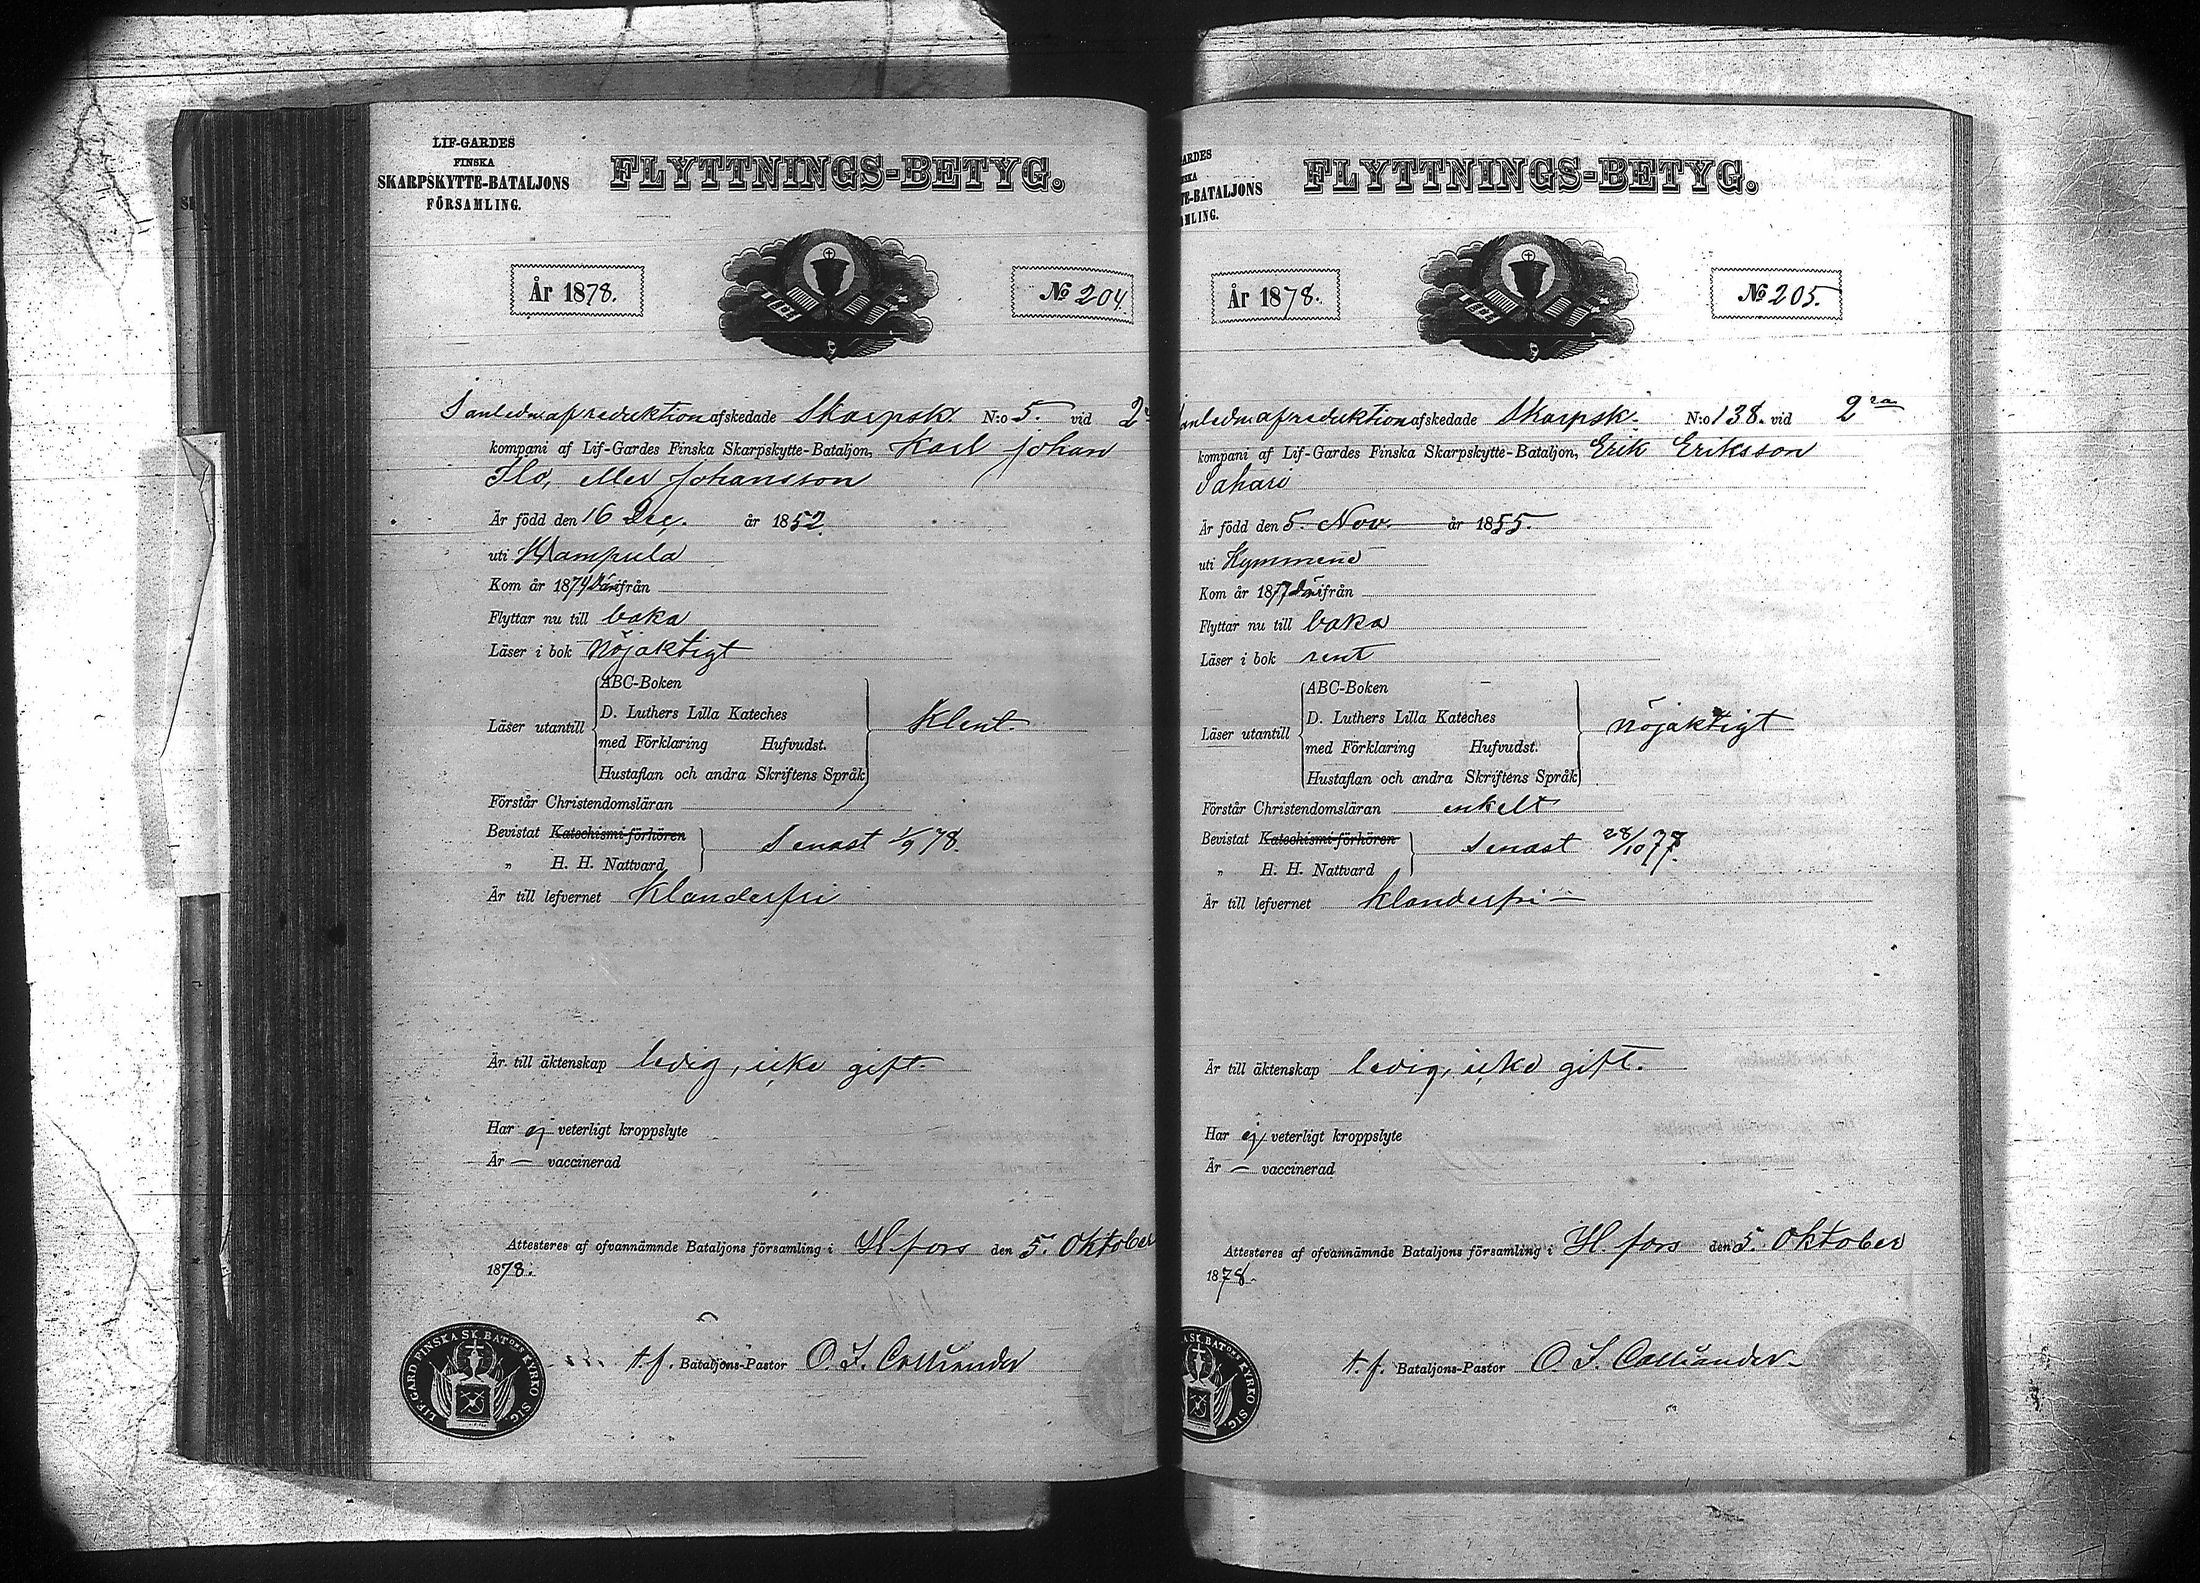 LIF-GARDES
FINSKA
SKARPSKYTTE-BATALJONS
FÖRSAMLING.
FLYTTNINGS-BETYG.
År 1878.
№ 204.
I anledn af reduktion afskedade Skarpsk. N:o 5. vid 2
kompani af Lif-Gardes Finska Skarpskytte-Bataljon, Karl Johan
Ilo, eller Johansson
Är född den 16 Dec. år 1852
uti Kampula
Kom år 1874 därifrån
Flyttar nu till baka
Läser i bok nöjaktigt
Läser utantill
ABC-Boken
D. Luthers Lilla Kateches
med Förklaring Hufvudst.
Hustaflan och andra Skriftens Språk
Klent.
Förstår Christendomsläran
Bevistat Katechismi-förhören
„ H. H. Nattvard
Senast 1/9 78.
Är till lefvernet Klanderfri
Är till äktenskap ledig, icke gift.
Har ej veterligt kroppslyte
Är — vaccinerad
Attesteres af ofvannämnde Bataljons församling i H.fors den 5. Oktober
1878.
LIF. GARD. FINSKA SK. BATONS KYRKO SIG.
t. f. Bataljons-Pastor O. I. Colliander
ARDES
SKA
TE-BATALJONS
MLING.
FLYTTNINGS-BETYG.
År 1878.
№ 205.
anledn af reduktion afskedade Skarpsk. N:o 138. vid 2ra
kompani af Lif-Gardes Finska Skarpskytte-Bataljon, Erik Eriksson
Sahari
Är född den 5. Nov. år 1855.
uti Kymmene
Kom år 1877 därifrån
Flyttar nu till baka
Läser i bok rent
Läser utantill
ABC-Boken
D. Luthers Lilla Kateches
med Förklaring Hufvudst.
Hustaflan och andra Skriftens Språk
nöjaktigt
Förstår Christendomsläran enkelt
Bevistat Katechismi-förhören
„ H. H. Nattvard
Senast 28/10 77.
Är till lefvernet klanderfri —
Är till äktenskap ledig, icke gift.
Har ej veterligt kroppslyte
Är — vaccinerad
Attesteres af ofvannämnde Bataljons församling i H.fors den 5. Oktober
1878.
A SK. BATONS KYRKO SIG.
t. f. Bataljons-Pastor O. I. Colliander